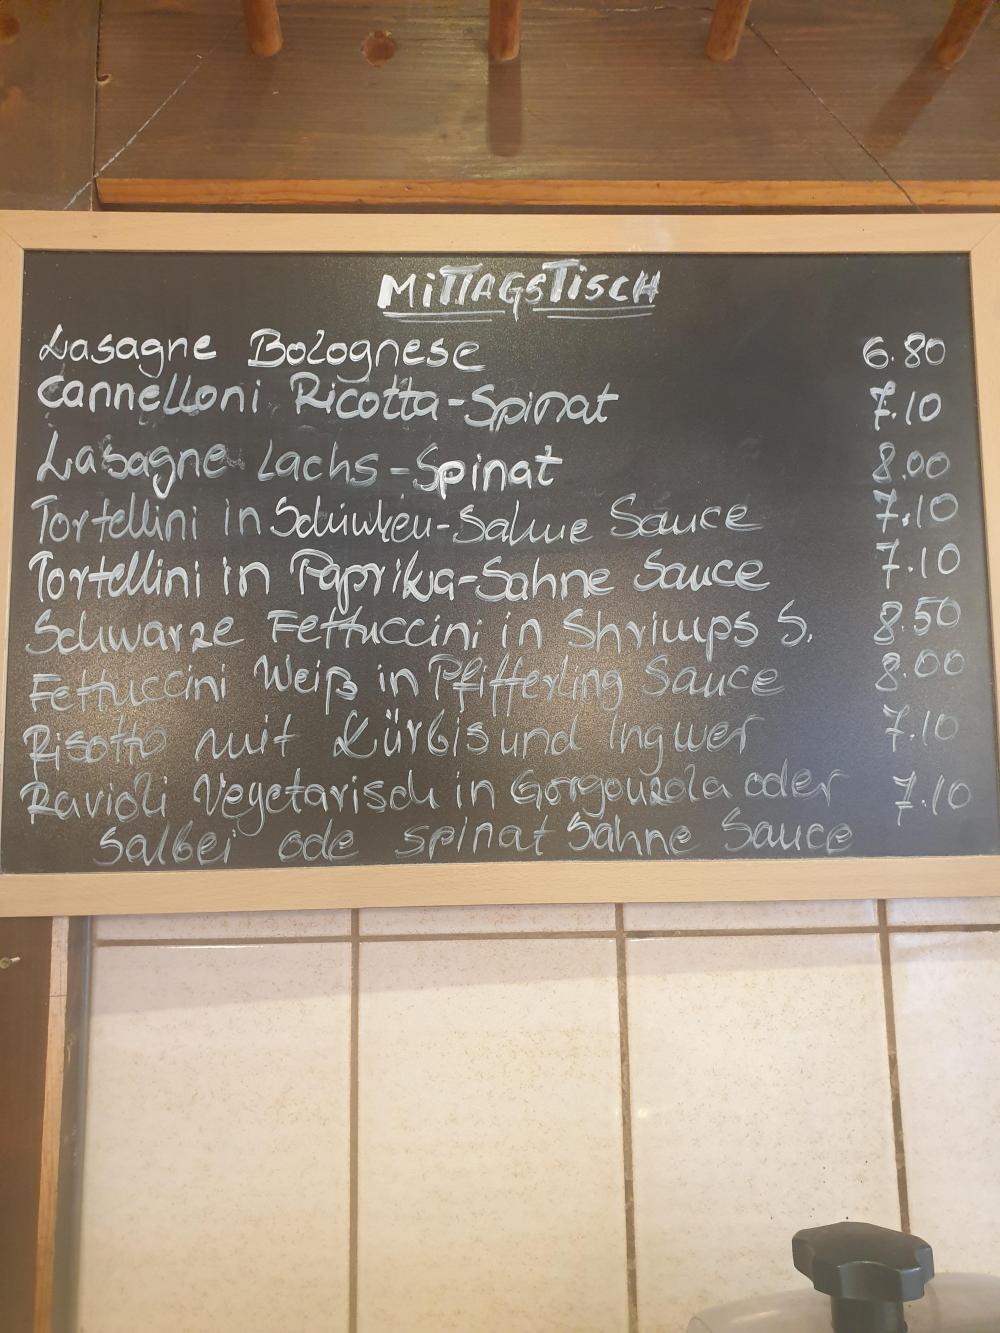 MiTTAGSTiSCH
Lasagne Bolognese 6.80
Cannelloni Ricotta-Spinat 7.10
Lasagne Lachs-Spinat 8.00
Tortellini in Schinken-Sahne Sauce 7.10
Tortellini in Paprika-Sahne Sauce 7.10
Schwarze Fettuccini in Shrimps S. 8.50
Fettuccini Weiß in Pfifferling Sauce 8.00
Risotto mit Kürbis und Ingwer 7.10
Ravioli Vegetarisch in Gorgonzola oder 7.10
Salbei ode spinat Sahne Sauce